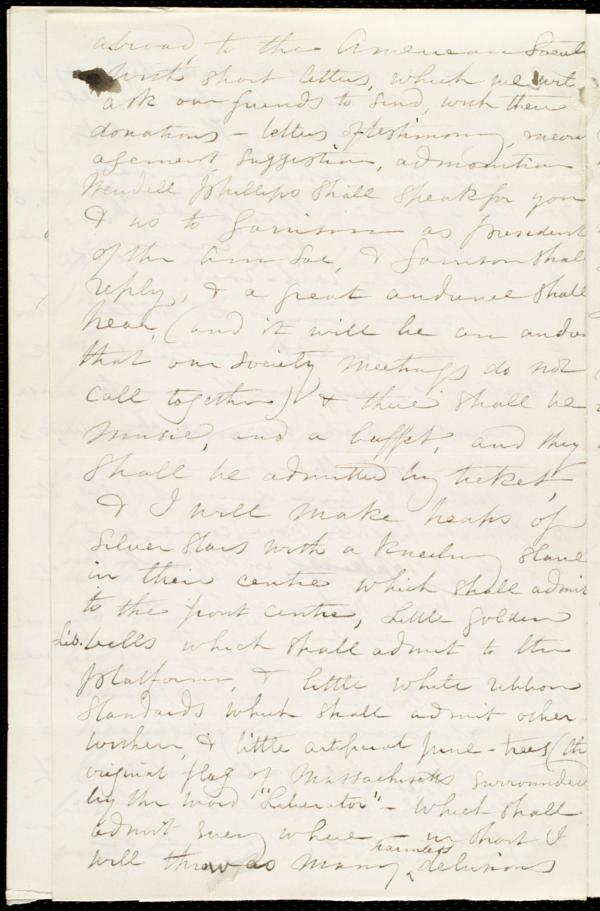 abroad, to the American Societ
with short letters, which we wil
ask our friends to send, with their
donations – letters of testimony, encou
agement, suggestion, admonition
Wendell Phillips shall speak for you
& us to Garrison as president
of the Am Soc, & Garrison shall
reply, & a great audience shall
hear, (and it will be an audie
that our society meetings do not
call together) & there shall be
music, and a buffet, and they
shall be admitted by ticket,
& I will make heaps of
silver stars with a kneeling slave
in their centre which shall admit
to the front centre, little golden
Lib. bells which shall admit to the
platform, & little white ribbon
standards which shall admit other
where, & little artificial pine-trees (the
original flag of Massachusetts surrounded
by the word "Liberator" – which shall
admit every where – in short I
will throw as many harmless delusions